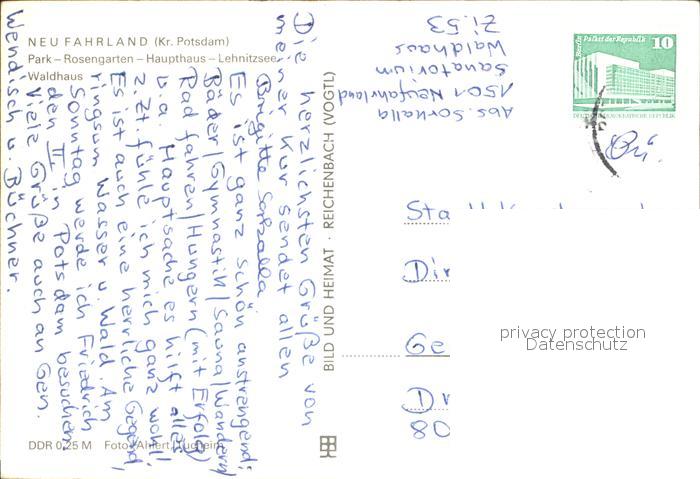 NEU FAHRLAND (Kr. Potsdam)
Park – Rosengarten – Haupthaus – Lehnitzsee
Waldhaus
Die herzlichsten Grüße von
meiner Kur sendet allen
Brigitte
Es ist ganz schön anstrengend:
Bäder/Gymnastik/Sauna/Wandern
Rad fahren/Hungern (mit Erfolg)
u.a. Hauptsache es hilft alles
z. Zt. fühle ich mich ganz wohl!
Es ist auch eine herrliche Gegend,
ringsum Wasser u. Wald. Am
Sonntag werde ich Friedrich
den II. in Potsdam besuchen.
Viele Grüße auch an Gen.
Wendisch u. Büchner.
DDR 0,25 M
BILD UND HEIMAT · REICHENBACH (VOGTL)
Abs.
1501 Neufahrland
Sanatorium
Waldhaus
Zi. 53
Berlin Palast der Republik
10
DEUTSCHE DEMOKRATISCHE REPUBLIK
Sta
Dir
Ge
Dr
80
privacy protection
Datenschutz